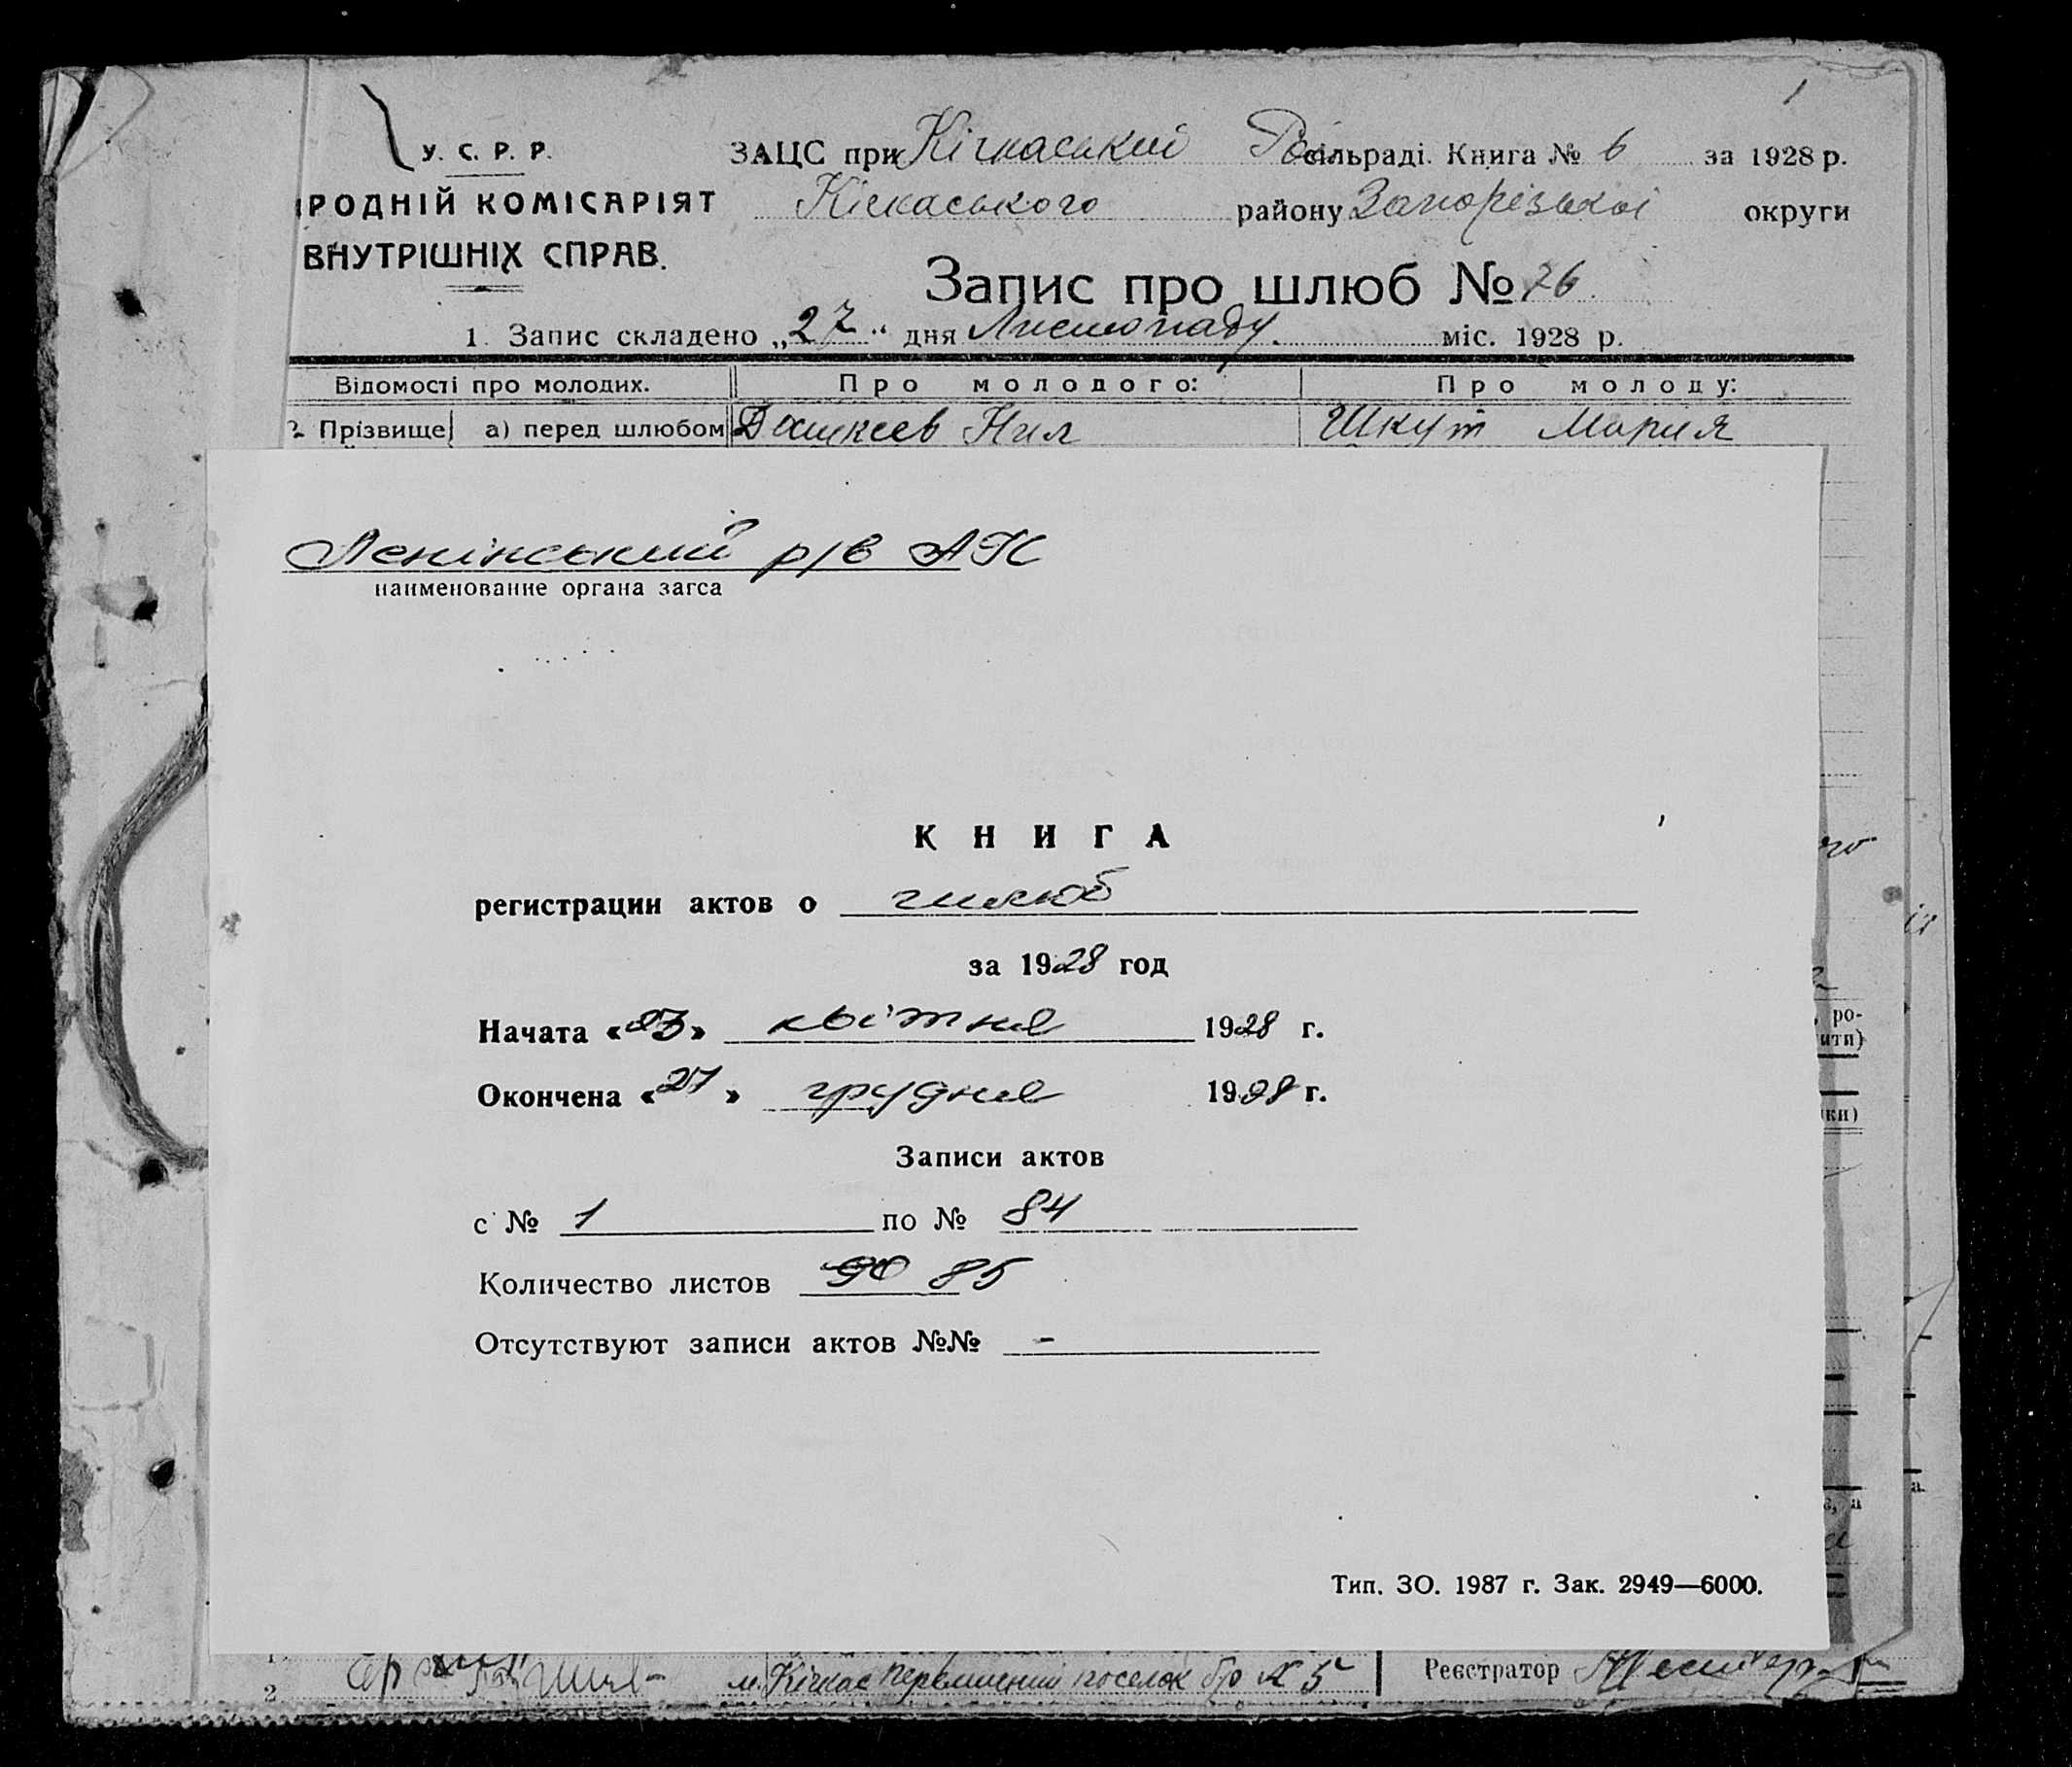 1
У. С. Р. Р.
РОДНІЙ КОМІСАРІЯТ
ВНУТРІШНІХ СПРАВ.
ЗАЦС при Кічкаській сільраді. Книга № 6 за 1928 р.
Кічкаського району Запорізької округи
Запис про шлюб № 76
1. Запис складено „27" дня Листопаду міс. 1928 р.
Відомості про молодих. Про молодого: Про молоду:
2. Прізвище а) перед шлюбом Дашкеев Нил Шкут Мария
Ленінський р/в
наименование органа загса
КНИГА
регистрации актов о шлюб
за 1928 год
Начата «23» квітня 1928 г.
Окончена «27» грудня 1928 г.
Записи актов
с № 1 по № 84
Количество листов 90 85
Отсутствуют записи актов №№ -
Тип. ЗО. 1987 г. Зак. 2949—6000.
ро-
ити)
ки)
2 м. Кічкас поселок № 5 Реєстратор